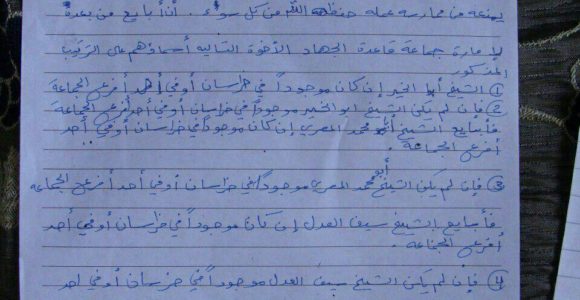 يمنعه من ممارسة عمله حفظه الله من كل سوء . أن أبايع من بعده
لإمارة جماعة قاعدة الجهاد الأخوة التالية أسماؤهم على الترتيب
المذكور
① الشيخ أبا الخير إن كان موجوداً في خراسان أو في أحد أفرع الجماعة
② فإن لم يكن الشيخ ابو الخير موجوداً في خراسان أو في أحد أفرع الجماعة
فأبايع الشيخ أبو محمد المصري إن كان موجوداً في خراسان أو في أحد
أفرع الجماعة .
③ فإن لم يكن الشيخ أبو محمد المصري موجوداً في خراسان أو في أحد أفرع الجماعة
فأبايع الشيخ سيف العدل إن كان موجوداً في خراسان أو في أحد
أفرع الجماعة .
④ فإن لم يكن الشيخ سيف العدل موجوداً في خراسان أو في احد